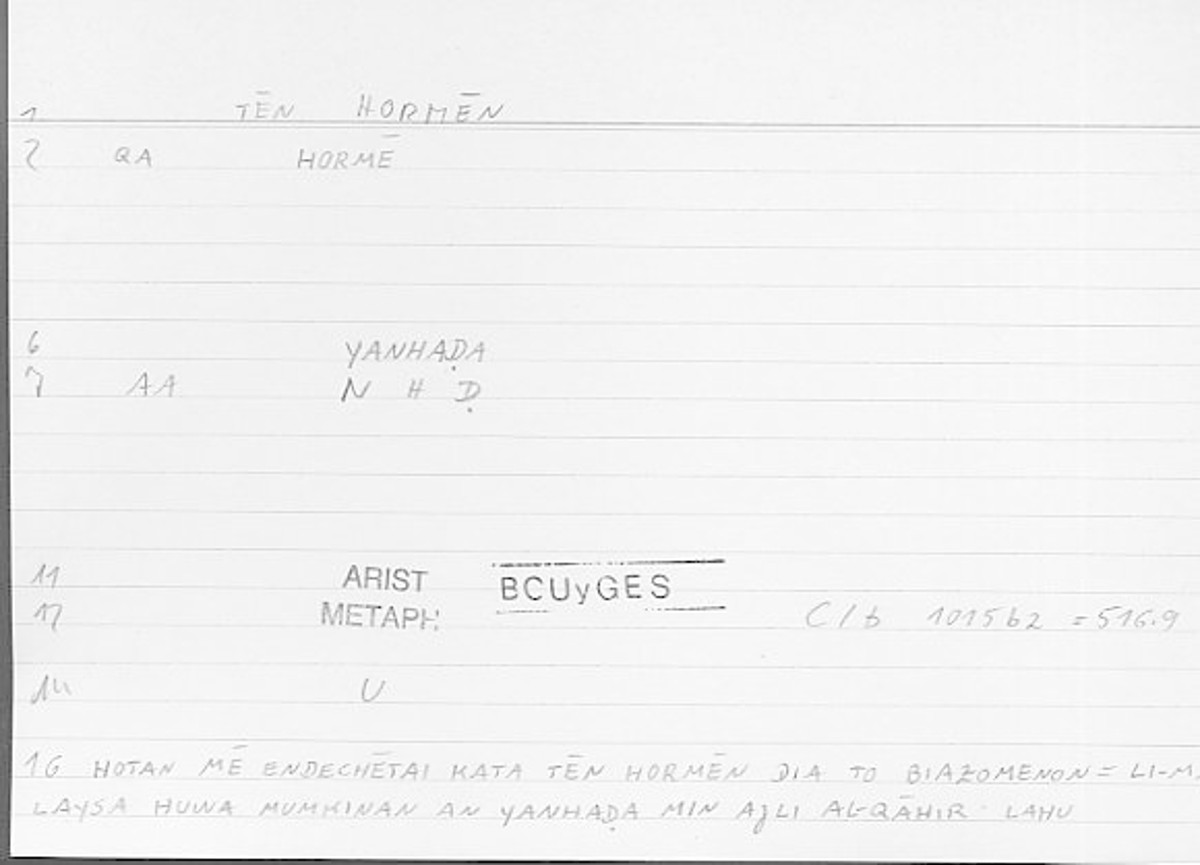 1 TĒN HORMĒN
2 QA HORMĒ
6 YANHAḌA
7 AA N H Ḍ
11 ARIST BCUyGES
12 METAPH C/b 1015b2 =516.9
14 U
16 HOTAN MĒ ENDECHĒTAI KATA TĒN HORMĒN DIA TO BIAZOMENON = LI-M
LAYSA HUWA MUMKINAN AN YANHAḌA MIN AJLI AL-QĀHIR LAHU